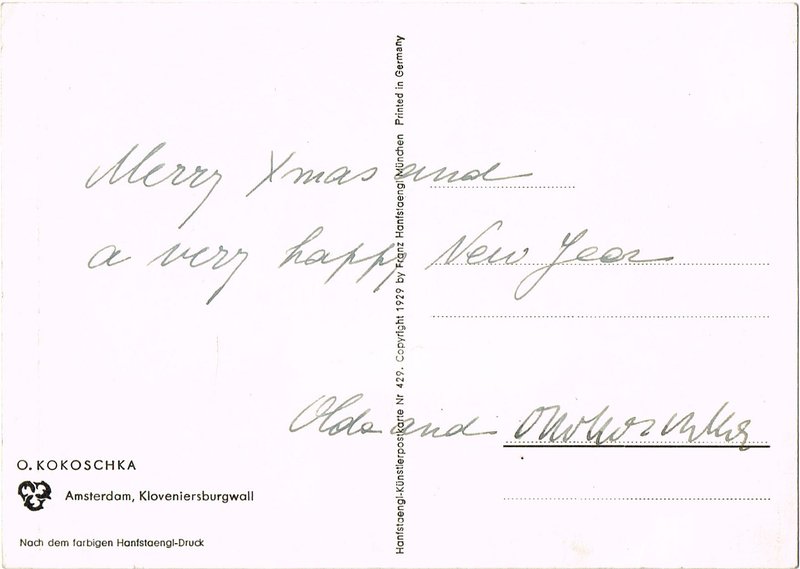 Merry Xmas and
a very happy New Year
Olda and OKokoschka
O. KOKOSCHKA
Amsterdam, Kloveniersburgwall
Nach dem farbigen Hanfstaengl-Druck
Hanfstaengl-Künstlerpostkarte Nr 429. Copyright 1929 by Franz Hanfstaengl München Printed in Germany